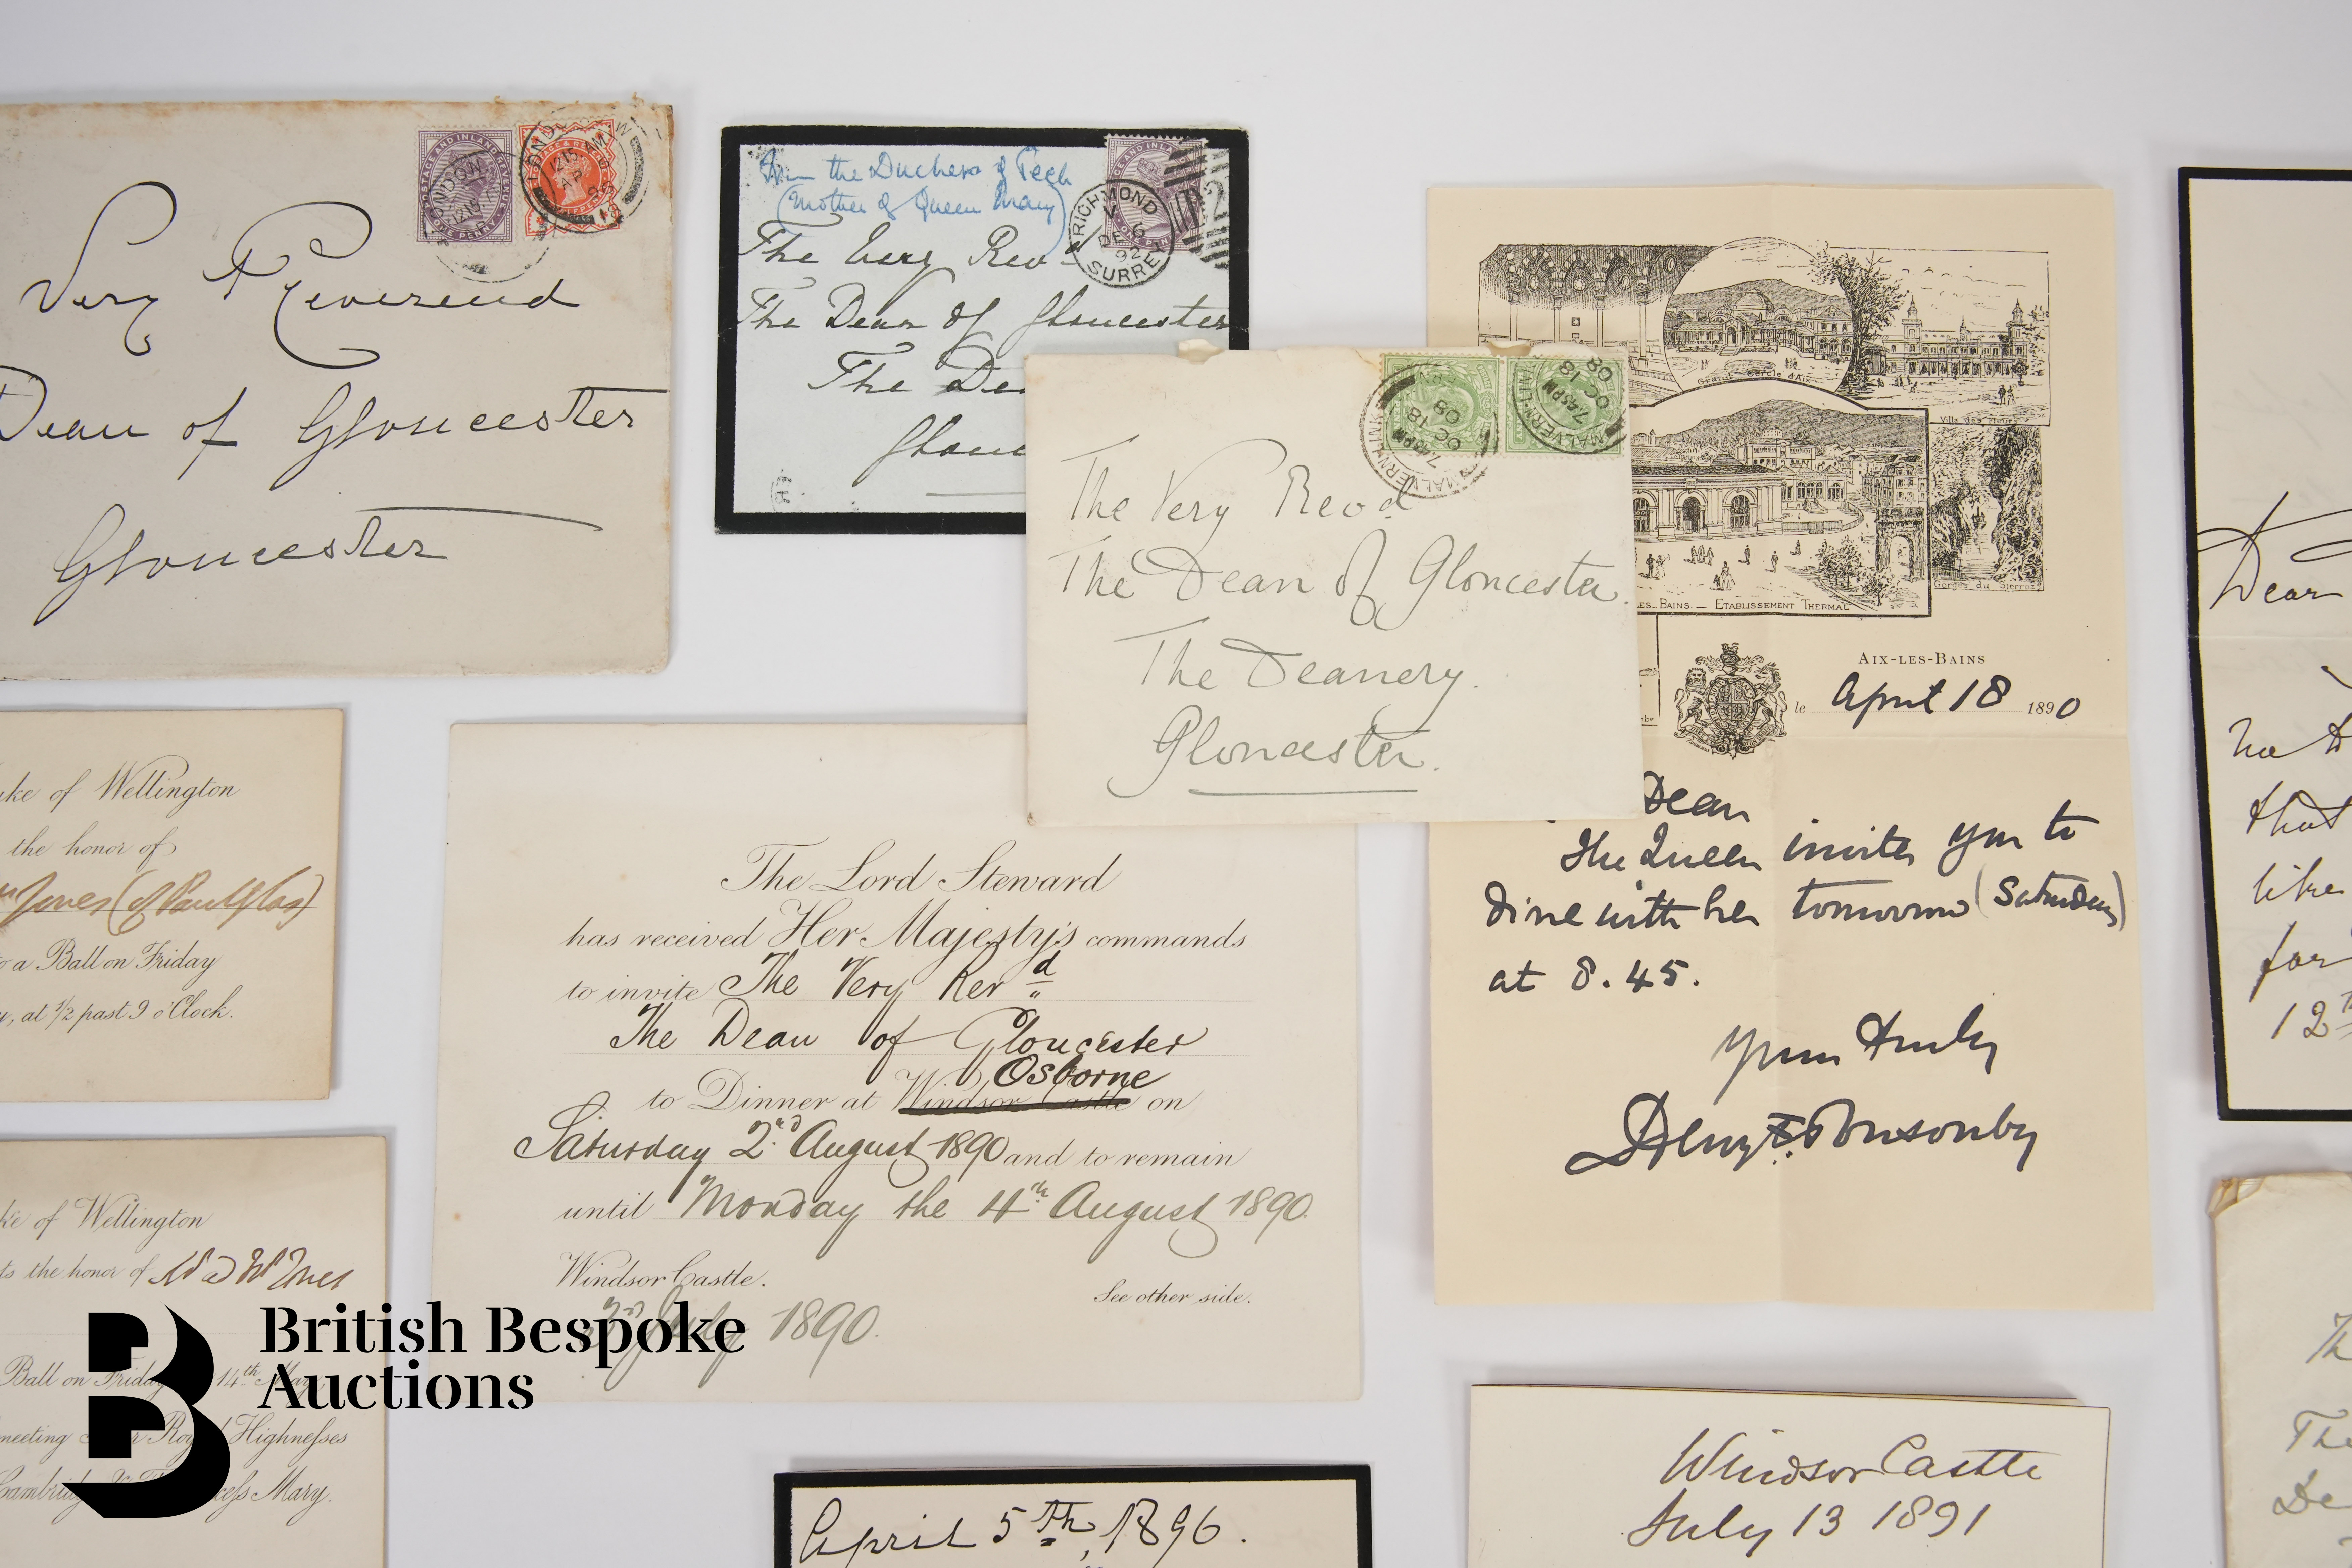 Very Reverend
Dean of Gloucester
Gloucester
POSTAGE AND INLAND REVENUE
ONE PENNY
LONDON
1215
LONDON W
1215 AM
AP
95
18
From the Duchess of Teck
(Mother of Queen Mary)
The Very Rev
The Dean of Gloucester
The De
Glouc
RICHMOND
DE 6
92
SURREY
The Very Revd
The Dean of Gloucester.
The Deanery.
Gloucester.
MALVERN LINK
7.45PM
OC 18
08
MALVERN-LINK
7.45PM
OC 18
08
Grand Cercle d'Aix
Villa des Fleurs
Gorges du Sierroz
LES-BAINS. — ETABLISSEMENT THERMAL
AIX-LES-BAINS
le April 18 1890
Dean
The Queen invites you to
dine with her tomorrow (Saturday)
at 8.45.
Yours truly
Henry F. Ponsonby
Dear
that
like
for
12th
uke of Wellington
the honor of
Jones
o a Ball on Friday
y, at 1/2 past 9 o'Clock.
ke of Wellington
ts the honor of
Ball on Friday 14th May
meeting Their Royal Highnesses
Cambridge & The Princess Mary.
The Lord Steward
has received Her Majesty's commands
to invite The Very Revd
The Dean of Gloucester
Osborne
to Dinner at Windsor Castle on
Saturday 2nd August 1890 and to remain
until Monday the 4th August 1890.
Windsor Castle.
See other side.
July 1890.
British Bespoke
Auctions
April 5th, 1896.
Windsor Castle
July 13 1891
Th
The
De